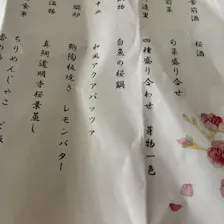 食前酒 桜酒
前菜 旬菜盛り合せ
造里 四種盛り合わせ 芽物一色
白魚の桜鍋
和風アクアパッツァ
陶板焼き レモンバター
真鯛道明寺桜葉蒸し
食事 ちりめんじゃこ
香の物